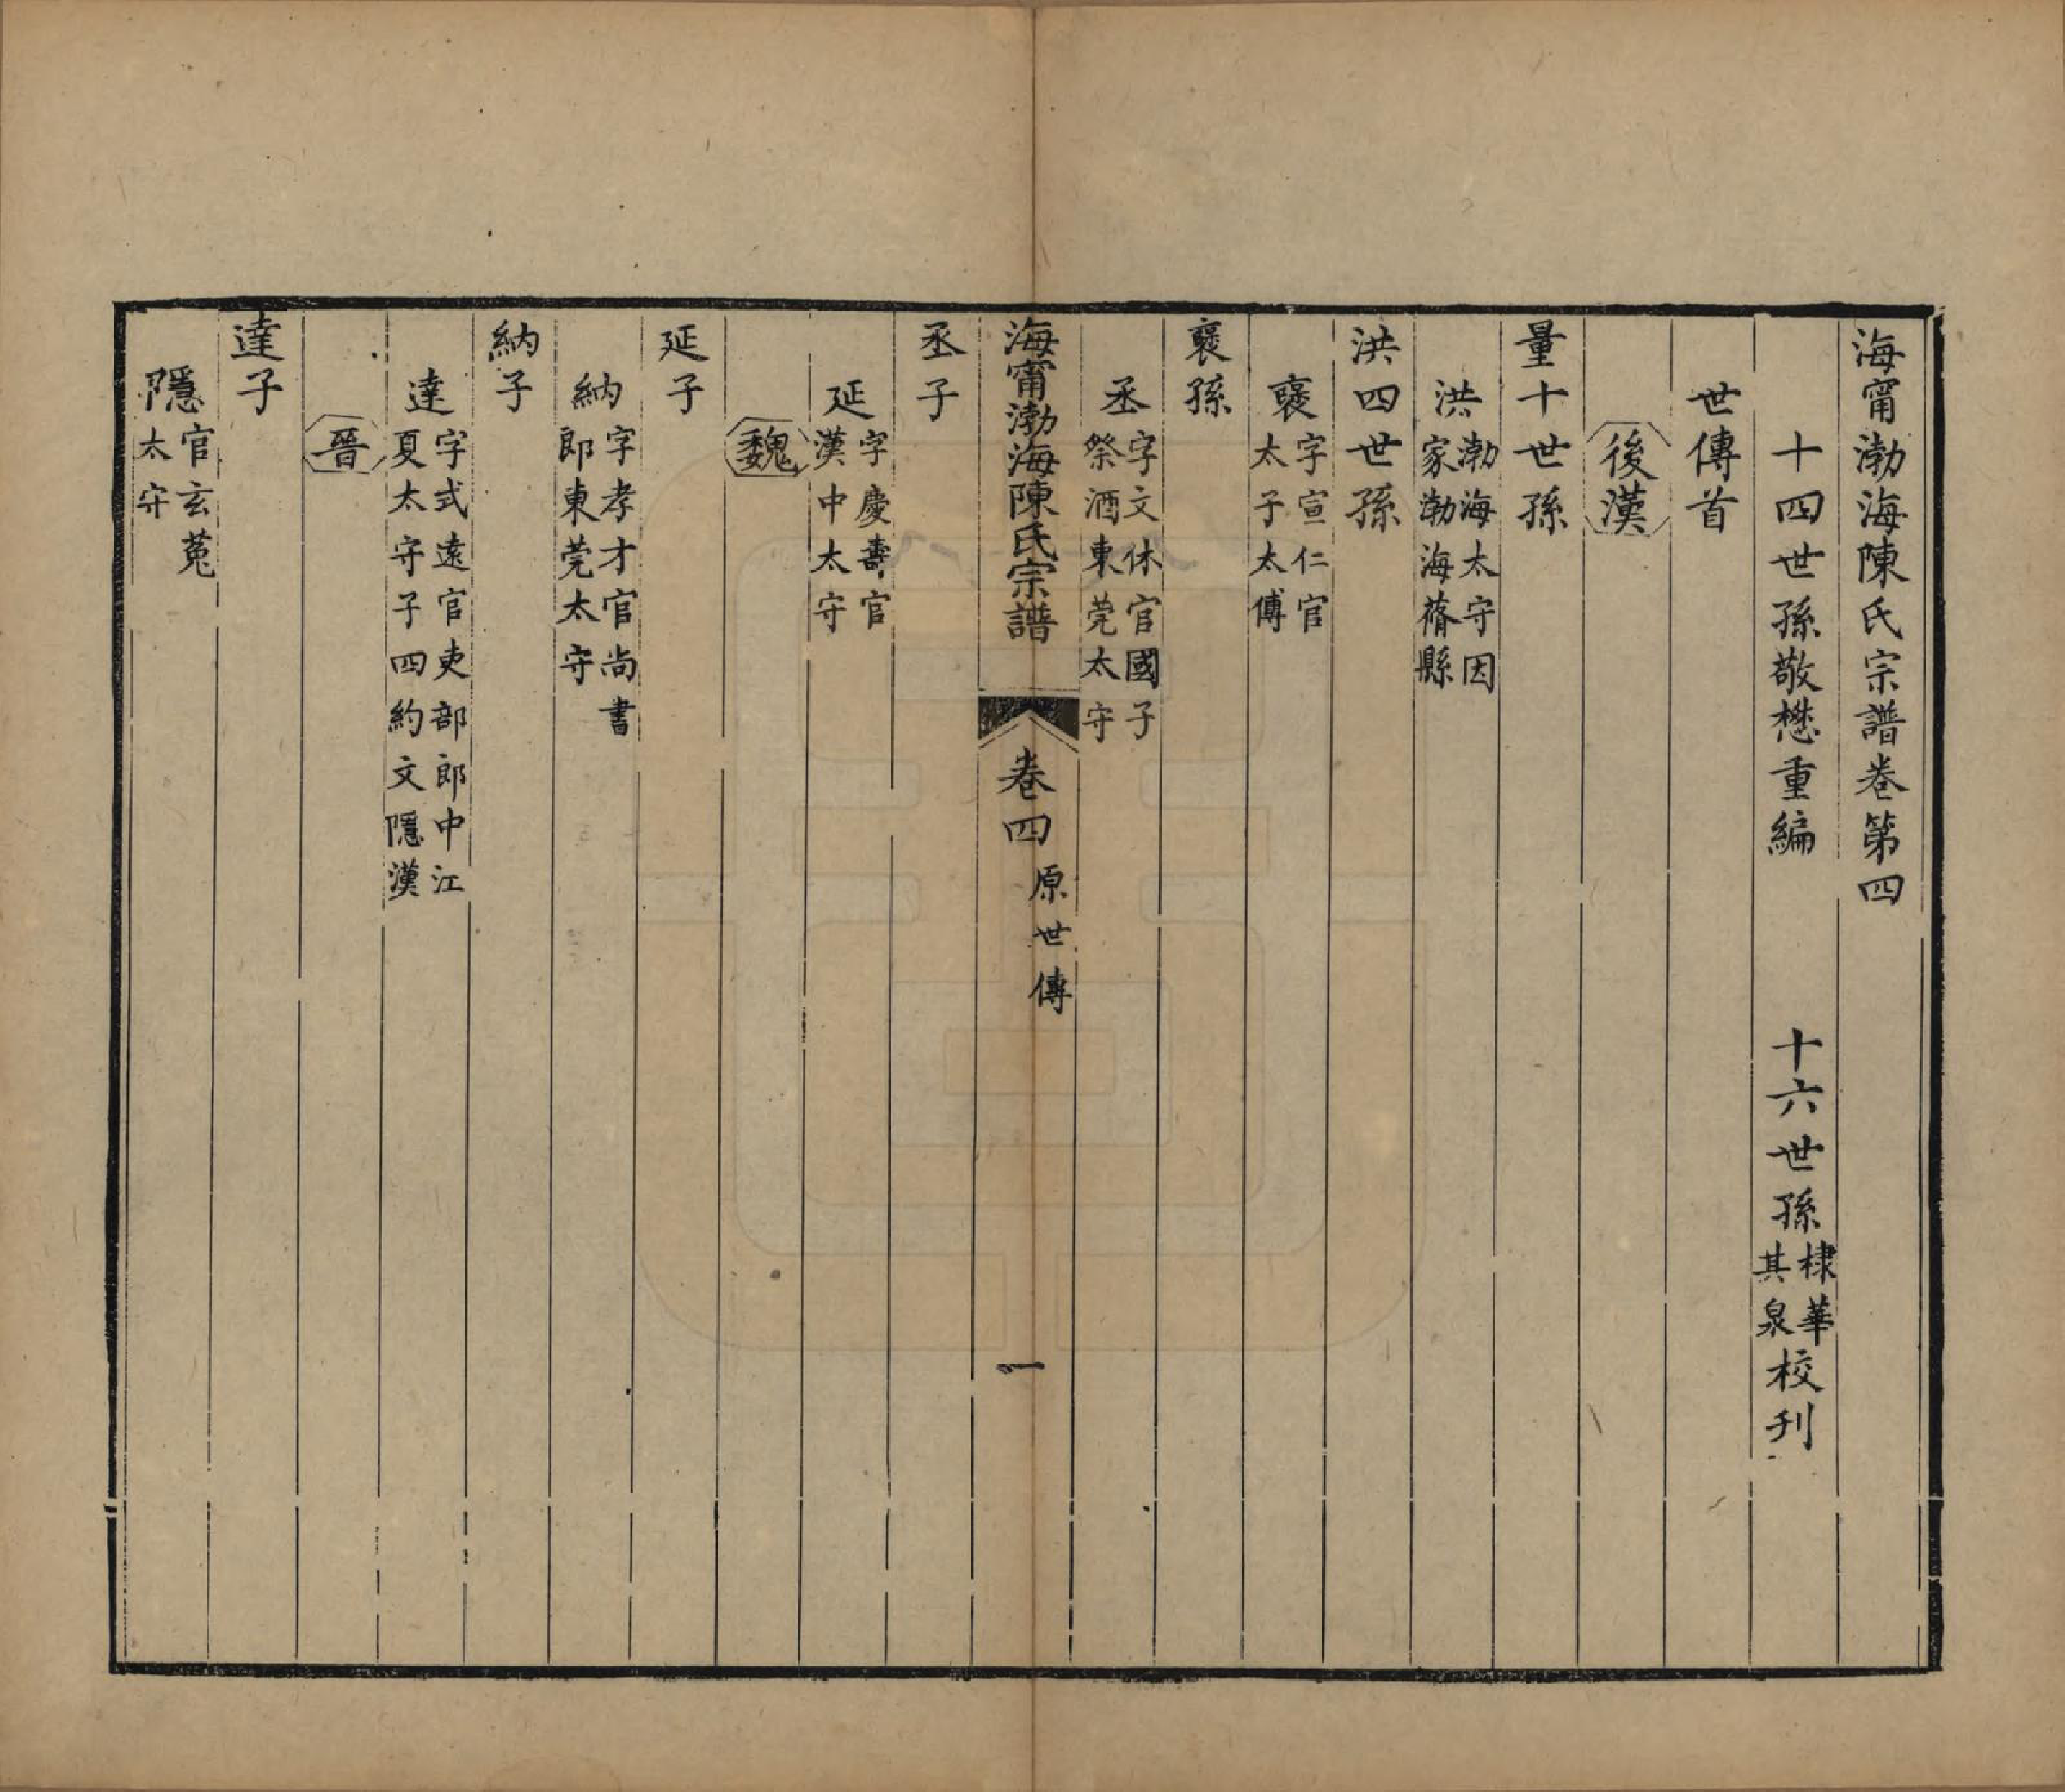 海甯渤海陳氏宗譜卷第四
十四世孫敬懋重編　十六世孫棣華其泉校刊
世傳首
後漢
量十世孫
洪渤海太守因家渤海蓨縣
洪四世孫
襃字宣仁官太子太傅
襃孫
丞字文休官國子祭酒東莞太守
海甯渤海陳氏宗譜　卷四　原世傳　一
丞子
延字慶壽官漢中太守
魏
延子
納字孝才官尚書郎東莞太守
納子
達字式遠官吏部郎中江夏太守子四約文隱漢
晉
達子
隱官玄菟太守